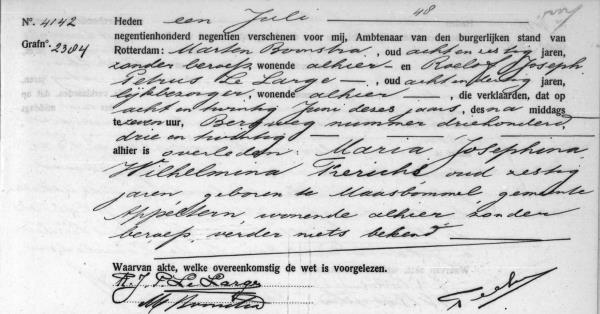 No. 4142 Heden een Juli 48
Grafno. 2384 negentienhonderd negentien verschenen voor mij, Ambtenaar van den burgerlijken stand van
Rotterdam: Marten Boonstra, oud acht en zestig jaren,
zonder beroep wonende alhier en Roelof Joseph
Petrus Le Large, oud acht en dertig jaren,
lijkbezorger, wonende alhier, die verklaarden, dat op
acht en twintig Juni dezes jaars, des na middags
te zeven uur, Bergweg nummer driehonderd
drie en twintig
alhier is overleden: Maria Josephina
Wilhelmina oud zestig
jaren, geboren te Maasbommel gemeente
Appeltern, wonende alhier, zonder
beroep, verder niets bekend
Waarvan akte, welke overeenkomstig de wet is voorgelezen.
R. J. P. Le Large
M Boonstra